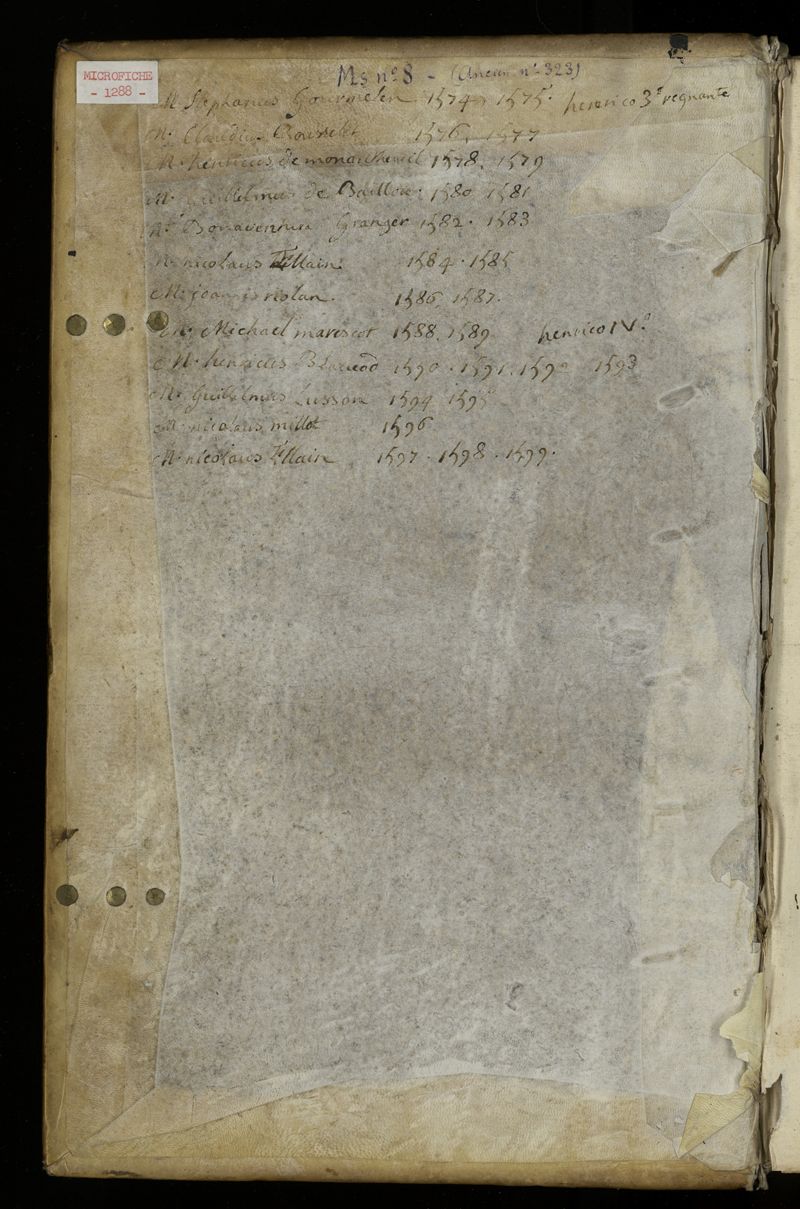 MICROFICHE
- 1288 -
Ms nº 8 - (Ancien nº 323)
M. Stephanus Gourmelen 1574, 1575. henrico 3º regnante
M. Claudius Rousselet 1576, 1577
M. henricus de monantheuil 1578, 1579
M. Guillelmus de Baillou 1580 1581
M. Bonaventura Granger 1582. 1583
M. nicolaus Ellain. 1584. 1585
M. joannis riolan. 1586, 1587.
M. Michael marescot 1588, 1589 henrico IVº
M. henricus Blacuod 1590. 1591. 1592 1593
M. Guillelmus Lusson 1594 1595
M. nicolaus millot 1596
M. nicolaus Ellain 1597. 1598. 1599.